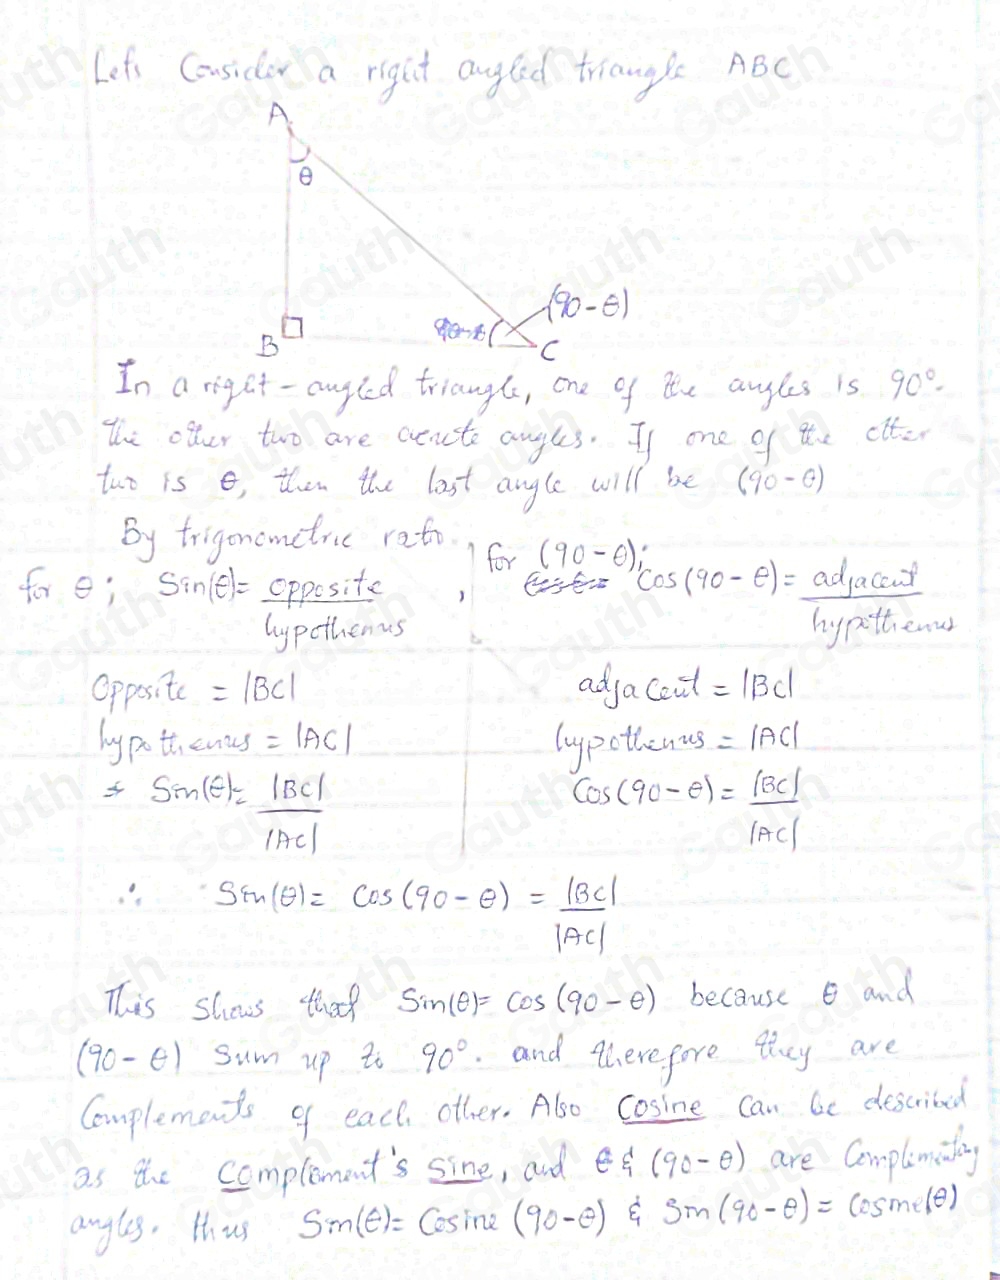 Lets Consider a right angled triangle ABC
A
θ
(90-θ)
B
C
In a right-angled triangle, one of the angles is 90°.
the other two are acute angles. If one of the other
two is θ, then the last angle will be (90-θ)
By trigonometric ratio.
for θ; Sin(θ)= opposite
hypothenus
,
for (90-θ);
Cos(90-θ)= adjacent
hypothenus
Opposite = |BC|
hypothenus = |AC|
Sin(θ)= |BC|
|AC|
adjacent = |BC|
hypothenus = |AC|
Cos(90-θ)= |BC|
|AC|
∴ Sin(θ)= Cos(90-θ) = |BC|
|AC|
This shows that Sin(θ)= Cos(90-θ) because θ and
(90-θ) Sum up to 90°. and therefore they are
Complements of each other. Also Cosine Can be described
as the complement's sine, and θ & (90-θ) are Complementary
angles. thus Sin(θ)= Cosine (90-θ) & Sin(90-θ) = Cosine(θ)